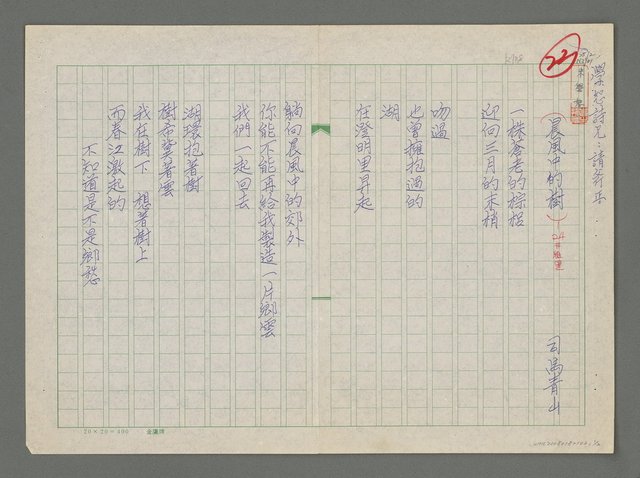 ㉒
晨風中的樹
24橫直
司馬青山
一株蒼老的棕梠
迎向三月的末梢
吻過
也曾擁抱過的
湖
在澄明里昇起
躺向晨風中的郊外
你能不能再給我製造一片鄉雲
我們一起回去
湖環抱著樹
樹希冀著雲
我在樹下 想著樹上
而春江激起的
不知道是不是鄉愁
20×20=400